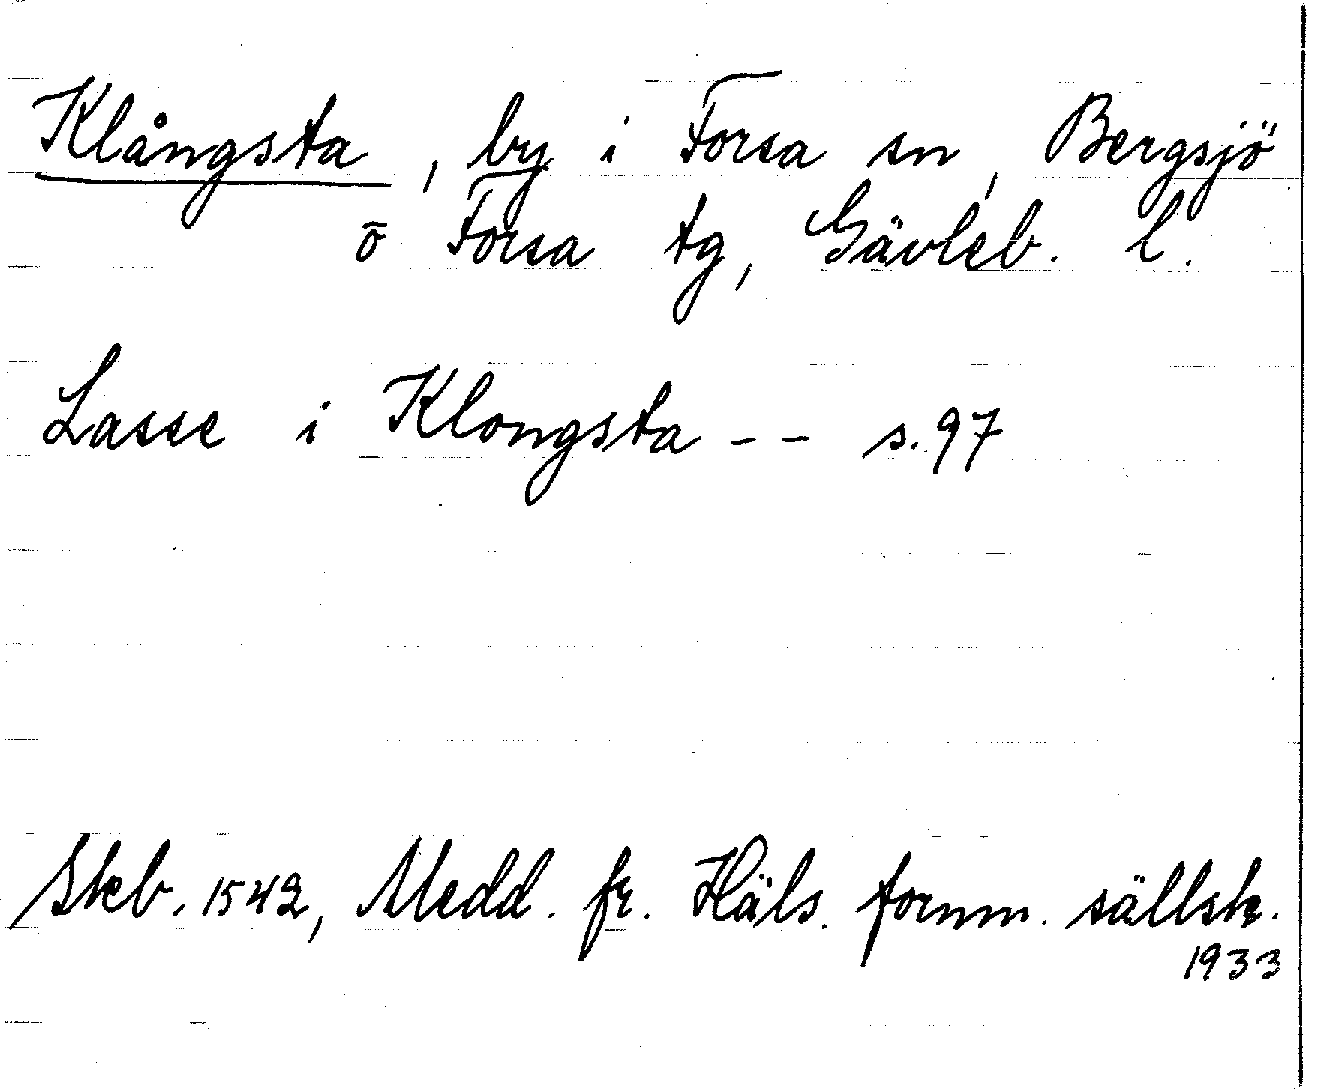 Klångsta, by i Forsa sn, Bergsjö
o̅ Forsa tg, Gävleb. l.
Lasse i Klongsta -- s. 97
Skb. 1542, Medd. fr. Häls. fornm. sällsk.
1933